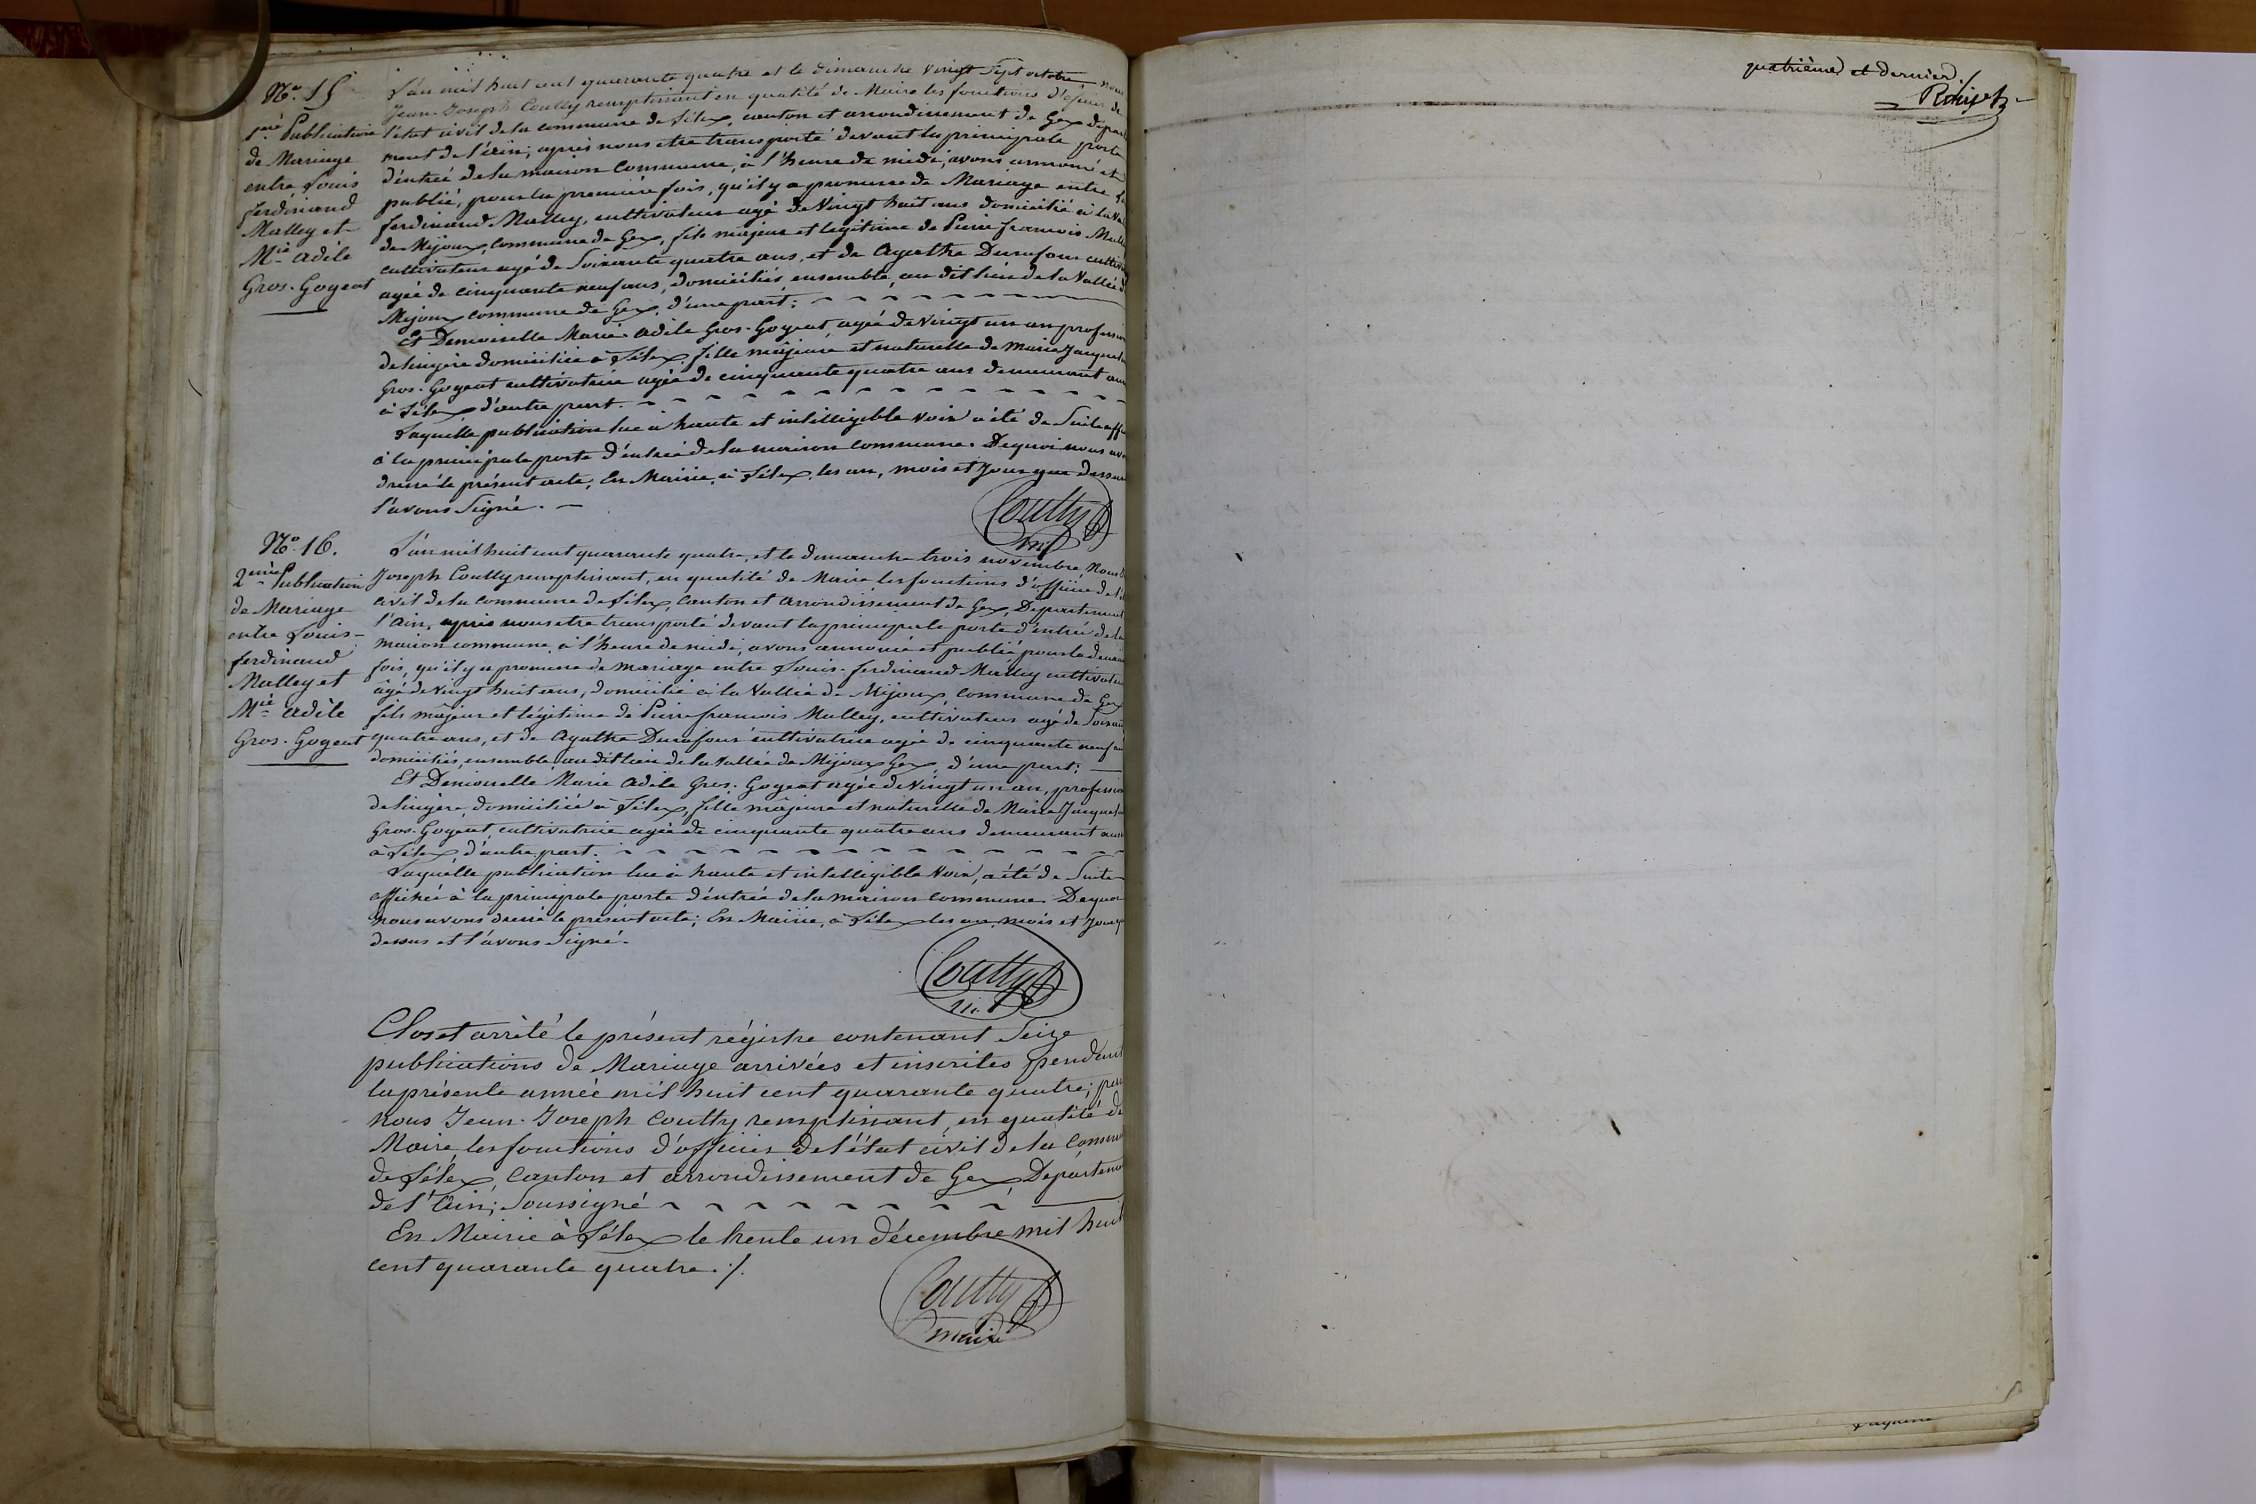 No. 15
1ère Publication
de Mariage
entre Louis
ferdinand
Malley et
Mie adèle
Gros-Gogeat
L'an mil huit cent quarante quatre et le dimanche vingt sept octobre nous
Jean-Joseph Coutty remplissant en qualité de Maire les fonctions d'officier de
l'état civil de la commune de Lélex, canton et arrondissement de Gex départe
ment de l'ain; après nous etre transporté devant la principale porte
d'entrée de la maison commune, à l'heure de midi, avons annoncé et
publié, pour la première fois, qu'il y a promesse de Mariage entre
ferdinand Malley, cultivateur agé de vingt huit ans domicilié à la Val
de Mijoux, commune de Gex, fils majeur et legitime de Pierre françois Mall
cultivateur agé de soixante quatre ans, et de Agathe Durafour cultiv
agée de cinquante neuf ans, domiciliés ensemble, au dit lieu de la Vallée d
Mijoux commune de Gex, d'une part;
Et Demoiselle Marie adèle Gros-Gogeat, agée de vingt un an profession
de lingère domiciliée à Lélex, fille majeure et naturelle de Marie Jacque
Gros-Gogeat cultivatrice agée de cinquante quatre ans demeurant au
à Lélex, d'autre part.
Laquelle publication lue à haute et intelligible voix a été de suite aff
à la principale porte d'entrée de la maison commune. De quoi nous av
dressé le présent acte, En Mairie, à Lélex, les an, mois et jour que dessus
l'avons signé.
Coutty
No. 16.
2ème Publication
de Mariage
entre Louis-
ferdinand
Malley et
Mie adèle
Gros-Gogeat
L'an mil huit cent quarante quatre, et le dimanche trois novembre, Nous
Joseph Coutty remplissant, en qualité de Maire les fonctions d'officier de l'é
civil de la commune de Lélex, canton et arrondissement de Gex, Département
l'ain, après nous etre transporté devant la principale porte d'entrée de la
maison commune, à l'heure de midi, avons annoncé et publié pour la deuxiè
fois, qu'il y a promesse de mariage entre Louis-ferdinand Malley cultivateu
agé de vingt huit ans, domicilié à la Vallée de Mijoux, commune de Gex
fils majeur et légitime de Pierre françois Malley, cultivateur agé de soixan
quatre ans, et de Agathe Durafour cultivatrice agée de cinquante neuf an
domiciliés, ensemble au dit lieu de la Vallée de Mijoux Gex, d'une part;
Et Demoiselle Marie adèle Gros-Gogeat agée de vingt un an, profession
de lingère, domiciliée à Lélex, fille majeure et naturelle de Marie Jacque
Gros-Gogeat, cultivatrice agée de cinquante quatre ans demeurant auss
à Lélex, d'autre part.
Laquelle publication lue à haute et intelligible voix, a été de suite
affichée à la principale porte d'entrée de la maison commune. De quoi
nous avons dressé le présent acte; En Mairie, à Lélex les an, mois et jour q
dessus et l'avons signé.
Coutty
Clos et arrêté le présent régistre contenant seize
publications de Mariage arrivées et inscrites pendant
la présente année mil huit cent quarante quatre; par
nous Jean-Joseph Coutty remplissant, en qualité de
Maire les fonctions d'officier de l'état civil de la Commu
de Lélex, Canton et arrondissement de Gex, Départeme
de l'ain; soussigné
En Mairie à Lélex le trente un décembre mil huit
cent quarante quatre./.
Coutty
maire
quatrième et dernier.